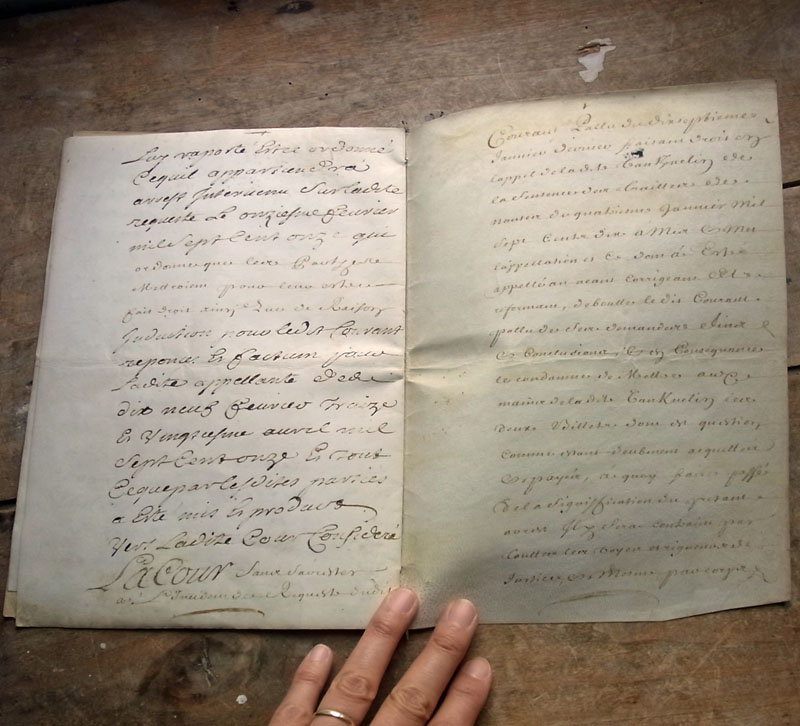 Luy raporté Estee ordonné
Cequil appartiendra
arrest Intervenu Surladite
requeste Le onziesme feurier
mil sept Cent onze qui
ordonne que les Parties
Mettroient pour leur estre
fait droit ainsy Que de Raison
Induction pour ledit Courant
reponces Et factum pour
Ladite appellante Des
dix neuf feurier Traize
Et Vingtiesme auril mil
Sept Cent onze Et Tout
Ceque par lesdites parties
a Esté mis Et produit
Vers Ladite Cour Considéré
LA COUR Sans Sarester
Requeste dudit
Courant Pallu du dixseptiesme
Januier dernier faisant droit en
Lappel de la dite de
la Sentence
du quatriesme Januier Mil
Sept Cents dix a Mis Et Mit
lappellation et Ce dont a Esté
appellé au neant Corrigeant Et
reformant, deboutte le dit Courant
pallu de Ses demandes fins
Et Conclusions, Et En Consequence
le condamne de Mettre aux
mains de la dite les
deux Billets dont en question
Comme estant doublement acquittés
Et payés, a quoy faire passé
de la Signiffication du present
arrest Il y Sera Contraint par
touttes les voyes et rigueurs de
Justice, Et Mesme par corps